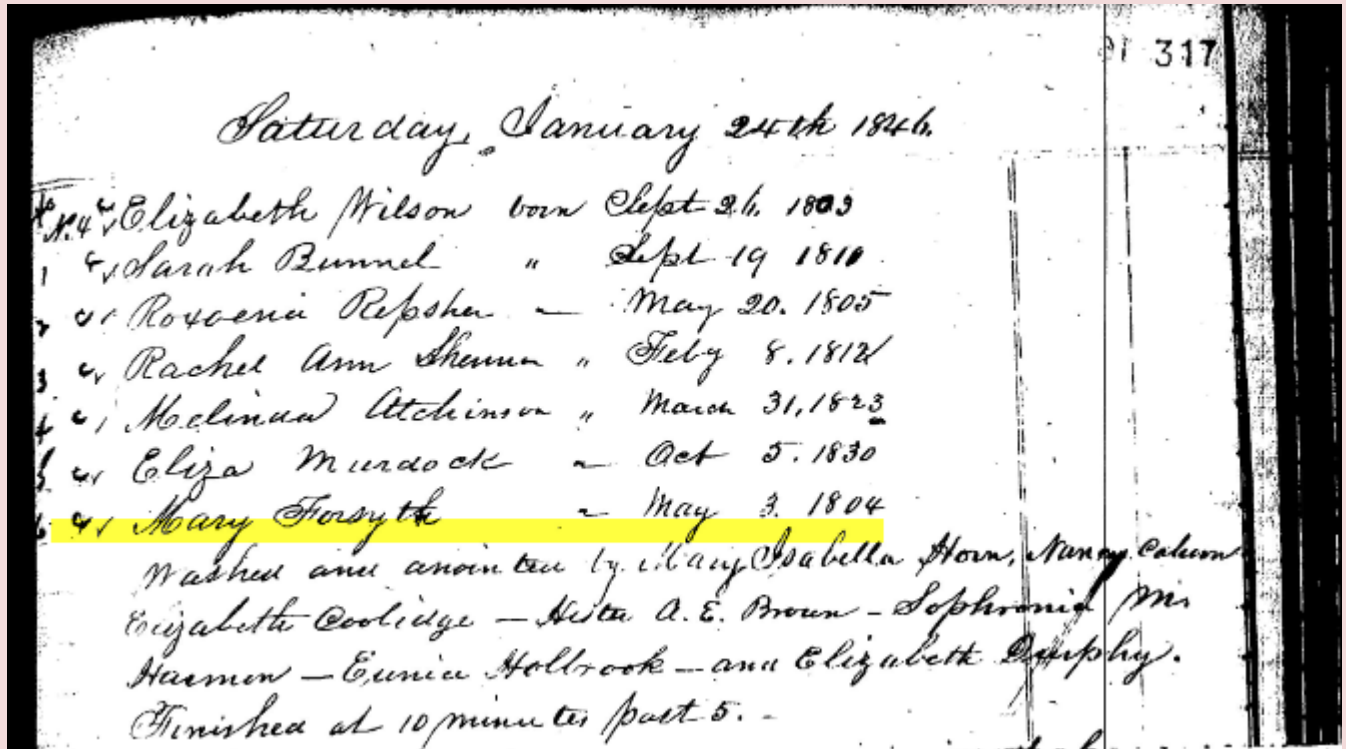 317
Saturday, January 24th 1846.
No. 4 Elizabeth Wilson born Sept 26. 1803
1 Sarah Bunnel " Sept 19 1810
2 Roxoena Repsher " May 20. 1805
3 Rachel Ann " Feby 8. 1812
4 Melinda Atchinson " March 31, 1823
5 Eliza Murdock " Oct 5. 1830
6 Mary Forsyth " May 3. 1804
Washed and anointed by Mary Isabella Horn, Nancy
Elizabeth Coolidge — Hester A. E. Brown — Sophronia
Harmon — Eunice Holbrook — and Elizabeth Durphy.
Finished at 10 minutes past 5. -